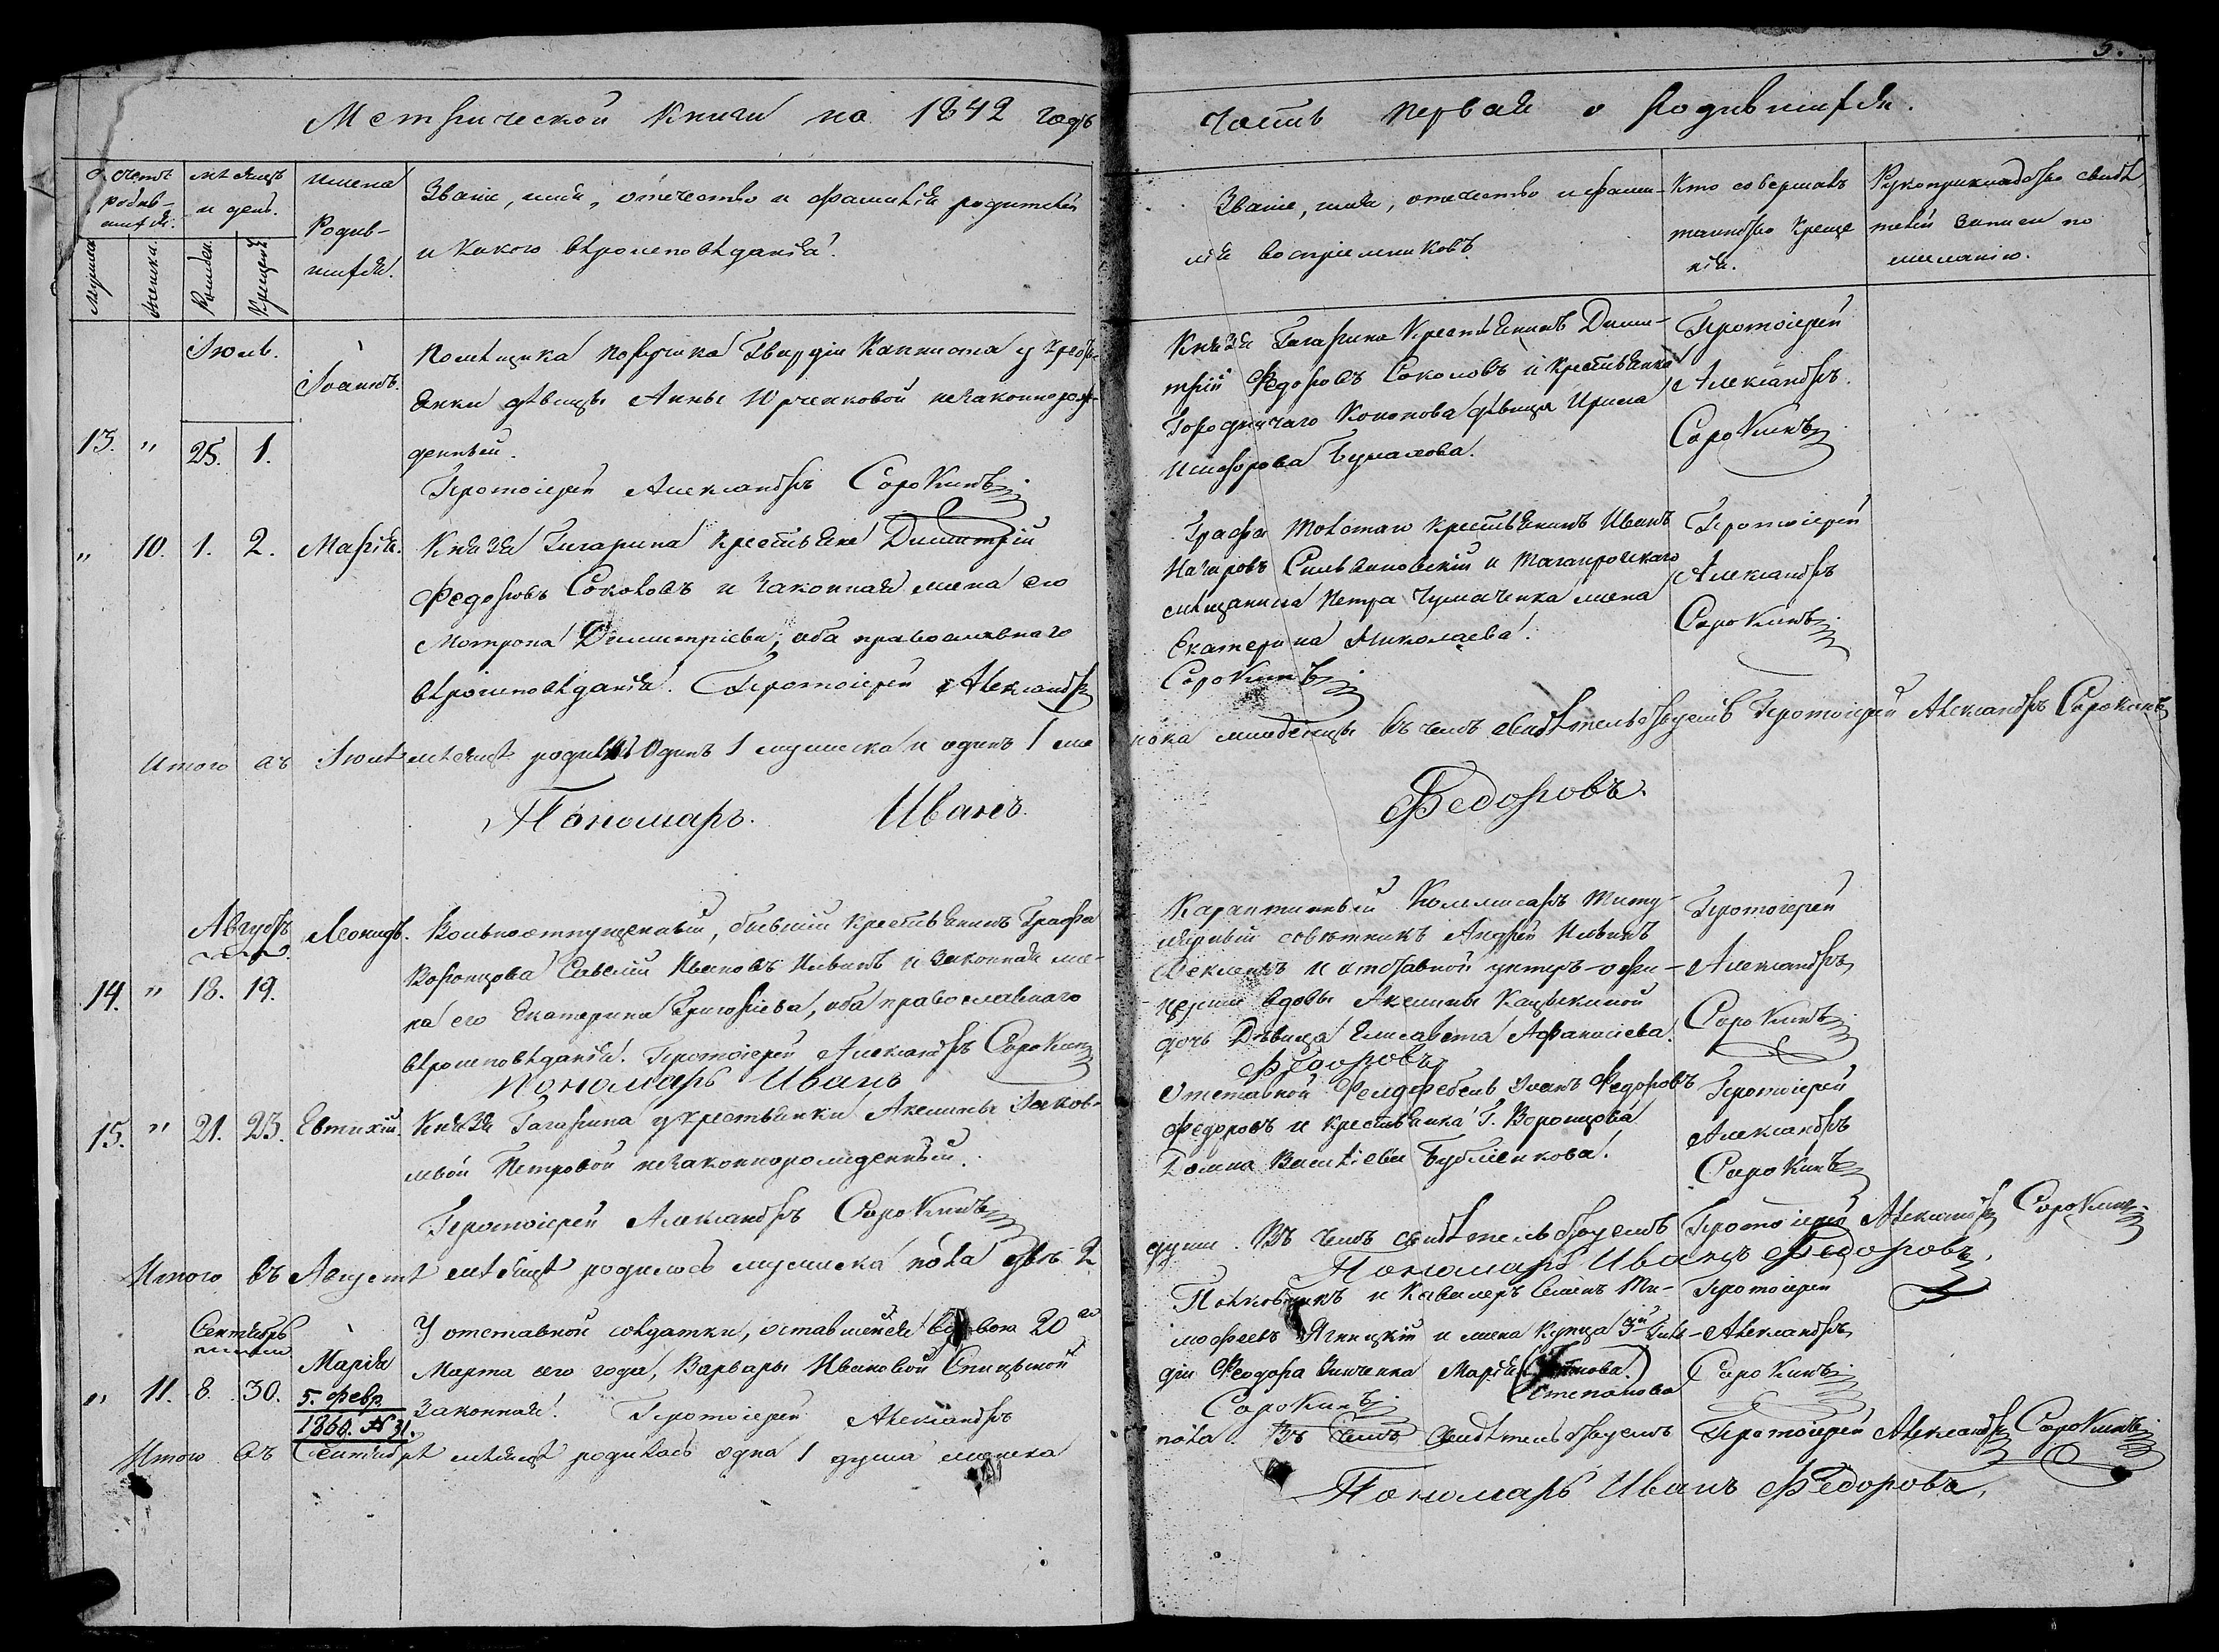 5.
Метрической книги на 1842 годъ
часть первая о родившихся.
счетъ родив-шихся.
мѣсяцъ и день.
имена Родив-шихся.
Званіе, имя, отечество и фамилія родителей
и какого вѣроисповѣданія.
Мужска
Женска.
Рожден.
Крещен.
Званіе, имя, отечество и фами-
лія воспріемниковъ.
Кто совершалъ
таинство Креще
нія.
Рукоприкладство свидѣ
телей записи по
желанію.
Іюль.
13. " 25. 1.
Іоаннъ.
Помѣщика Поручика Гвардіи Капниста у крестья
янки дѣвицы Анны Юрченковой незаконнорож-
денный.
Протоіерей Александръ Сорокинъ
Князя Гагарина Крестьянинъ Дими-
трій Федоровъ Соколовъ и крестьянка
Городничаго Кононова дѣвица Ирина
Бумахова.
Протоіерей
Александръ
Сорокинъ
" 10. 1. 2. Марія.
Князя Гагарина крестьяне Димитрій
Федоровъ Соколовъ и законная жена его
Матрона Димитріева, оба православнаго
вѣроисповѣданія. Протоіерей Александръ
Графа Толстаго крестьянинъ Иванъ
Назаровъ и Таганрогскаго
мѣщанина Петра Чумаченка жена
Екатерина Николаева.
Сорокинъ
Протоіерей
Александръ
Сорокинъ
Итого въ Іюлѣ мѣсяцѣ родилось одинъ 1 мужска и одинъ 1 же
нска младенцы въ чемъ свидѣтельствуемъ Протоіерей Александръ Сорокинъ
Пономарь Иванъ
Федоровъ.
Августъ
14. " 18. 19.
Леонидъ.
Вольноотпущенный, бывшій крестьянинъ Графа
Воронцова Савелій Ивановъ Ильинъ и законная же-
на его Екатерина Григоріева, оба православнаго
вѣроисповѣданія. Протоіерей Александръ Сорокинъ
Пономарь Иванъ
Карантинный Коммисаръ Титу-
лярный совѣтникъ Андрей Ильинъ
и отставной унтеръ-офи-
церши вдовы Акилины
дочь Дѣвица Елисавета Афанасіева.
Федоровъ
Протоіерей
Александръ
Сорокинъ
15. " 21. 23. Евтихій.
Князя Гагарина у крестьянки Акилины Яков-
левой Петровой незаконнорожденный.
Протоіерей Александръ Сорокинъ
Отставной Фелдфебель Иванъ Федоровъ
Федоровъ и крестьянка Г. Воронцова
Домна Василіева Бубликова.
Протоіерей
Александръ
Сорокинъ
Итого въ Августѣ мѣсяцѣ родилось мужска пола двѣ 2
души. Въ чемъ свидѣтельствуемъ Протоіерей Александръ Сорокинъ
Пономарь Иванъ Федоровъ,
Сентябрь
" 11. 8. 30.
Марія
5. Февр.
1860. № 31.
У отставной солдатки, оставшейся вдовою 20го
Марта сего года, Варвары Ивановой
законная. Протоіерей Александръ
Полковникъ и Кавалеръ Семенъ Ти-
мофеевъ Ягницкій и жена Купца 3й Гиль-
діи Феодора Зинченка Марія
Степанова
Сорокинъ
Протоіерей
Александръ
Сорокинъ
Итого въ Сентябрѣ мѣсяцѣ родилась одна 1 душа женска
пола. Въ чемъ свидѣтельствуемъ Протоіерей Александръ Сорокинъ
Пономарь Иванъ Федоровъ,